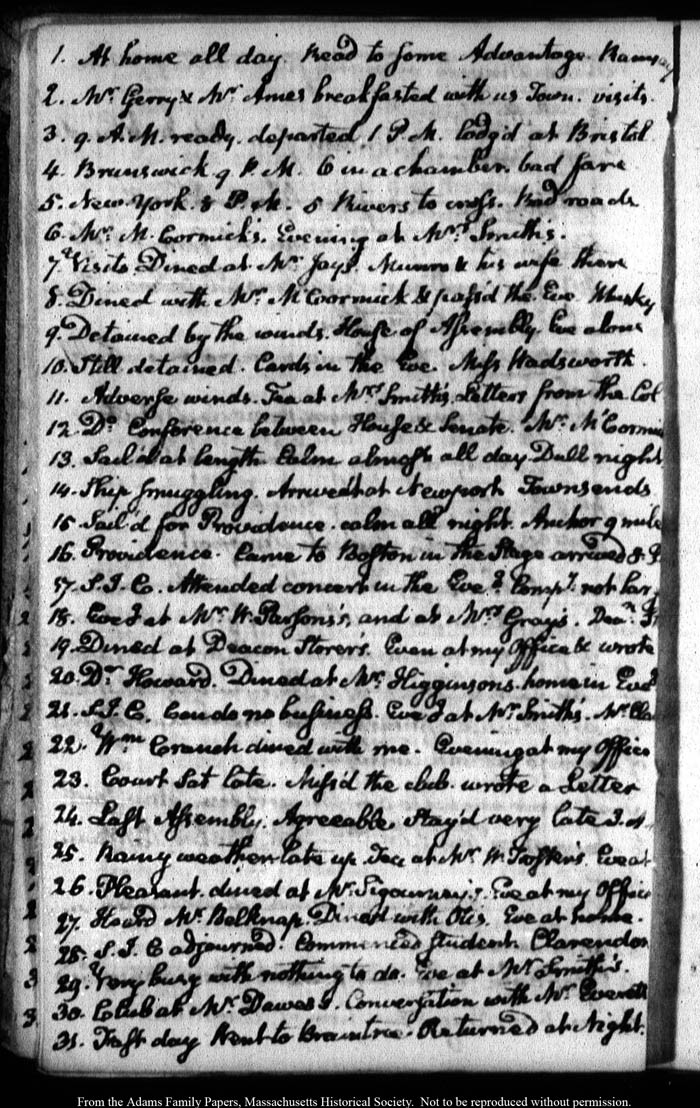 1. At home all day. Read to some Advantage. Rainy
2. Mr. Gerry & Mr. Ames breakfasted with us Town. visits.
3. 9. A.M. ready. departed, 1 P.M. lodg'd at Bristol
4. Brunswick 9 P.M. 6 in a chamber. bad fare
5. New York. 8 P.M. 5 Rivers to cross. Bad roads
6. Mr. McCormick's. Evening at Mrs. Smith's.
7. Visits Dined at Mr. Jays. Munro & his wife there
8. Dined with Mr. McCormick & pass'd the Eve. Whisky
9. Detained by the winds. House of Assembly. Eve alone
10. Still detained. Cards in the Eve. Miss Wadsworth.
11. Adverse winds. Tea at Mrs. Smith's. Letters from the Col
12. Do. Conference between House & Senate. Mr. McCormi
13. Sail'd at length Calm almost all day. Dull night
14. Ship smuggling. Arrived at Newport. Townsends
15. Sail'd for Providence. calm all night. Anchor 9 mile
16. Providence. Came to Boston in the Stage arrived 8. P.
17. S. J. C. Attended concert in the Eveg. Compy. not lar
18. Eveg at Mr. W. Parsons's, and at Mrs. Gray's.
19. Dined at Deacon Storer's. Even at my Office & wrote
20. Dr. Howard. Dined at Mr. Higginson's. home in Eveg
21. S. J. C. Can do no business. Eveg at Mr. Smith's. Mr. Cla
22. Wm. Cranch dined with me. Evening at my Office
23. Court Sat late. Miss'd the club. wrote a Letter
24. Last Assembly. Agreeable, Stay'd very late
25. Rainy weather late up. Tea at Mr. W. Foster's. Eve at
26. Pleasant. dined at Mr. Sigourney's. Eve at my Office
27. Heard Mr. Belknap. Dined with Otis. Eve at home.
28. S. J. C adjourned. Commenced student. Clarendon
29. Very busy with nothing to do. Eve at Mr. Smith's.
30. Club at Mr. Dawes's. Conversation with Mr. Everett
31. Fast day Went to Braintree. Returned at Night.
From the Adams Family Papers, Massachusetts Historical Society. Not to be reproduced without permission.